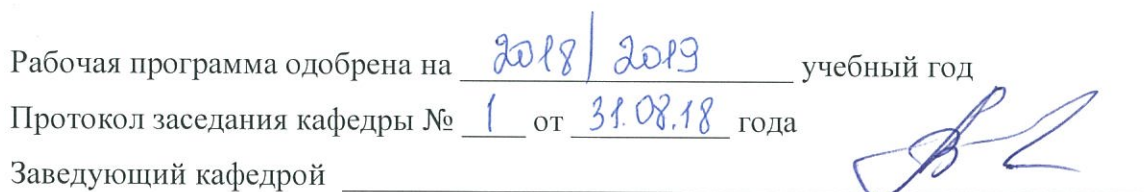 Рабочая программа одобрена на 2018/2019 учебный год
Протокол заседания кафедры № 1 от 31.08.18 года
Заведующий кафедрой